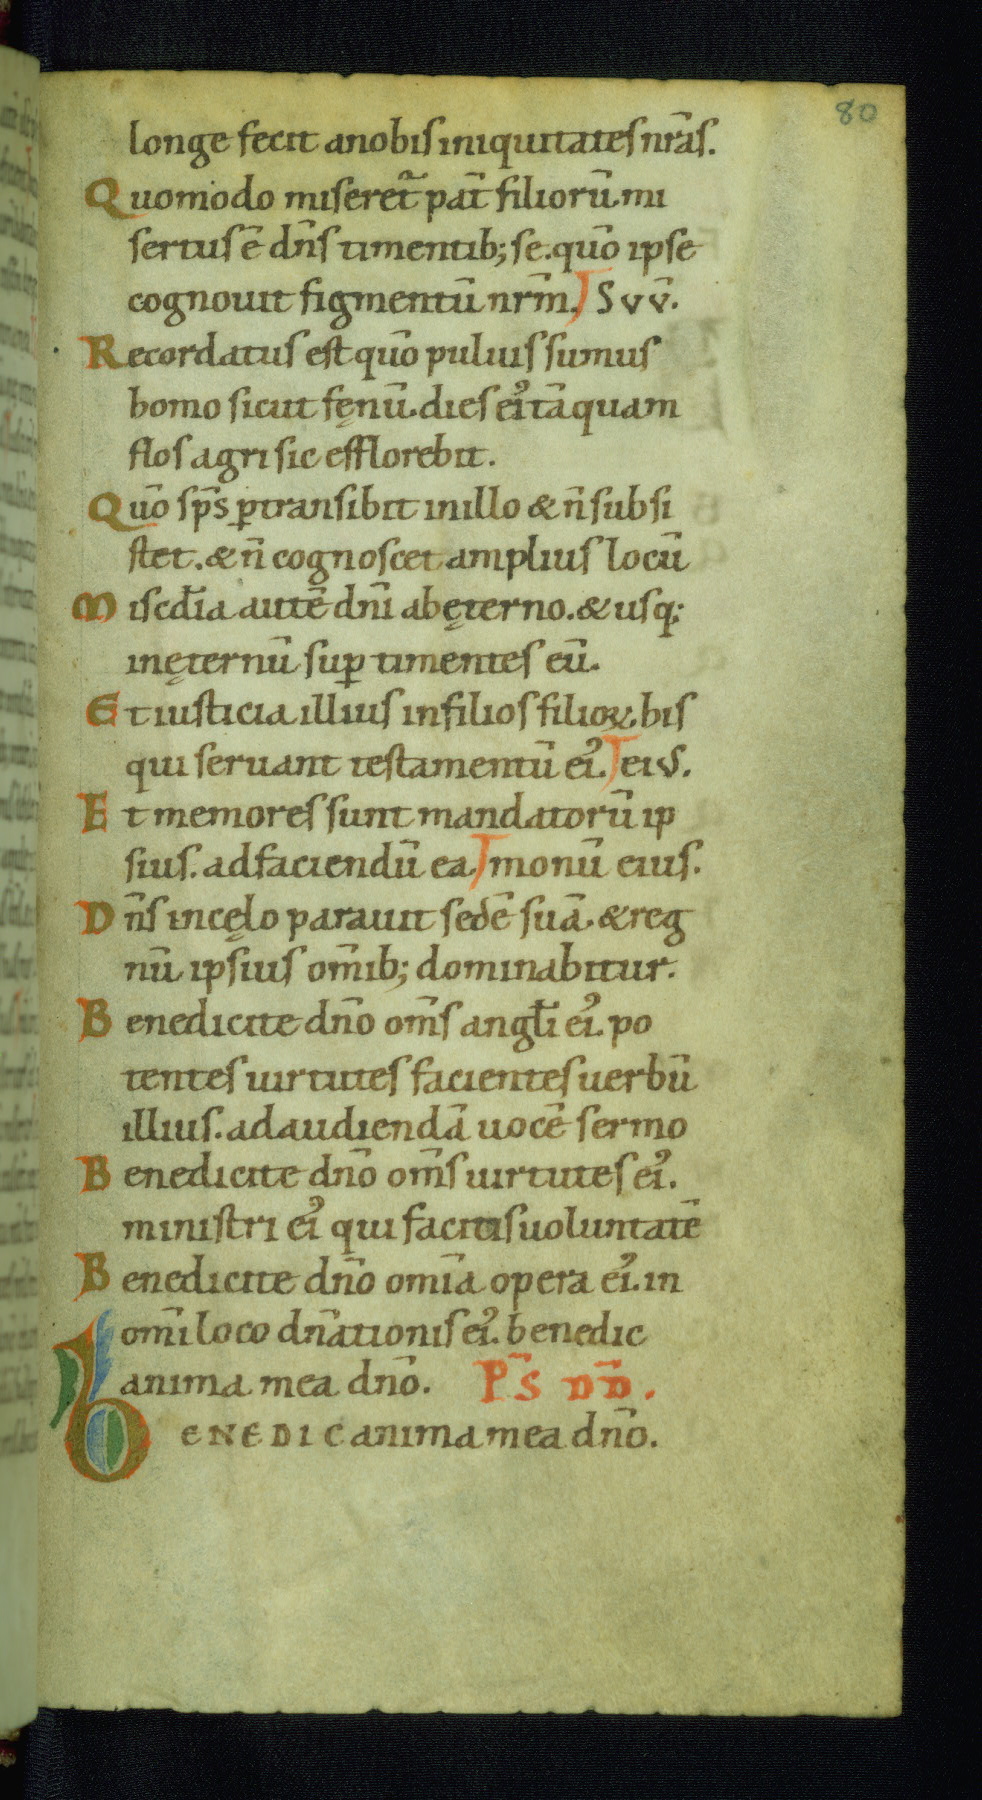 80
longe fecit anobis iniquitates nr̄as.
Quomodo miseret̄ pat̄ filiorū. mi
sertus ē dn̄s timentib; se. quō ipse
cognouit figmentū nrm̄. suū.
Recordatus est quō puluis sumus
homo sicut fęnū. dies ei᾽ tāquam
flos agri sic efflorebit.
Quō sps̄ ꝑtransibit inillo & n̄ subsi
stet. & n̄ cognoscet amplius locū
Miscd̄ia autē dn̄i ab ęterno. & usq;
inęternū suꝑ timentes eū.
Et iusticia illius infilios filioꝝ. his
qui seruant testamentū ei᾽. eius.
Et memores sunt mandatorū ip
sius. adfaciendū ea. monū eius.
Dn̄s incęlo parauit sedē suā. & reg
nū ipsius om̄ib; dominabitur.
Benedicite dn̄o om̄s angl̄i ei᾽. po
tentes uirtutes facientes uerbū
illius. adaudiendā uocē sermo
Benedicite dn̄o om̄s uirtutes ei᾽.
ministri ei᾽ qui facitis uoluntatē
Benedicite dn̄o omīa opera ei᾽. in
om̄i loco dn̄ationis ei᾽. benedic
anima mea dn̄o. PS̄ DD̄.
BENEDIC anima mea dn̄o.